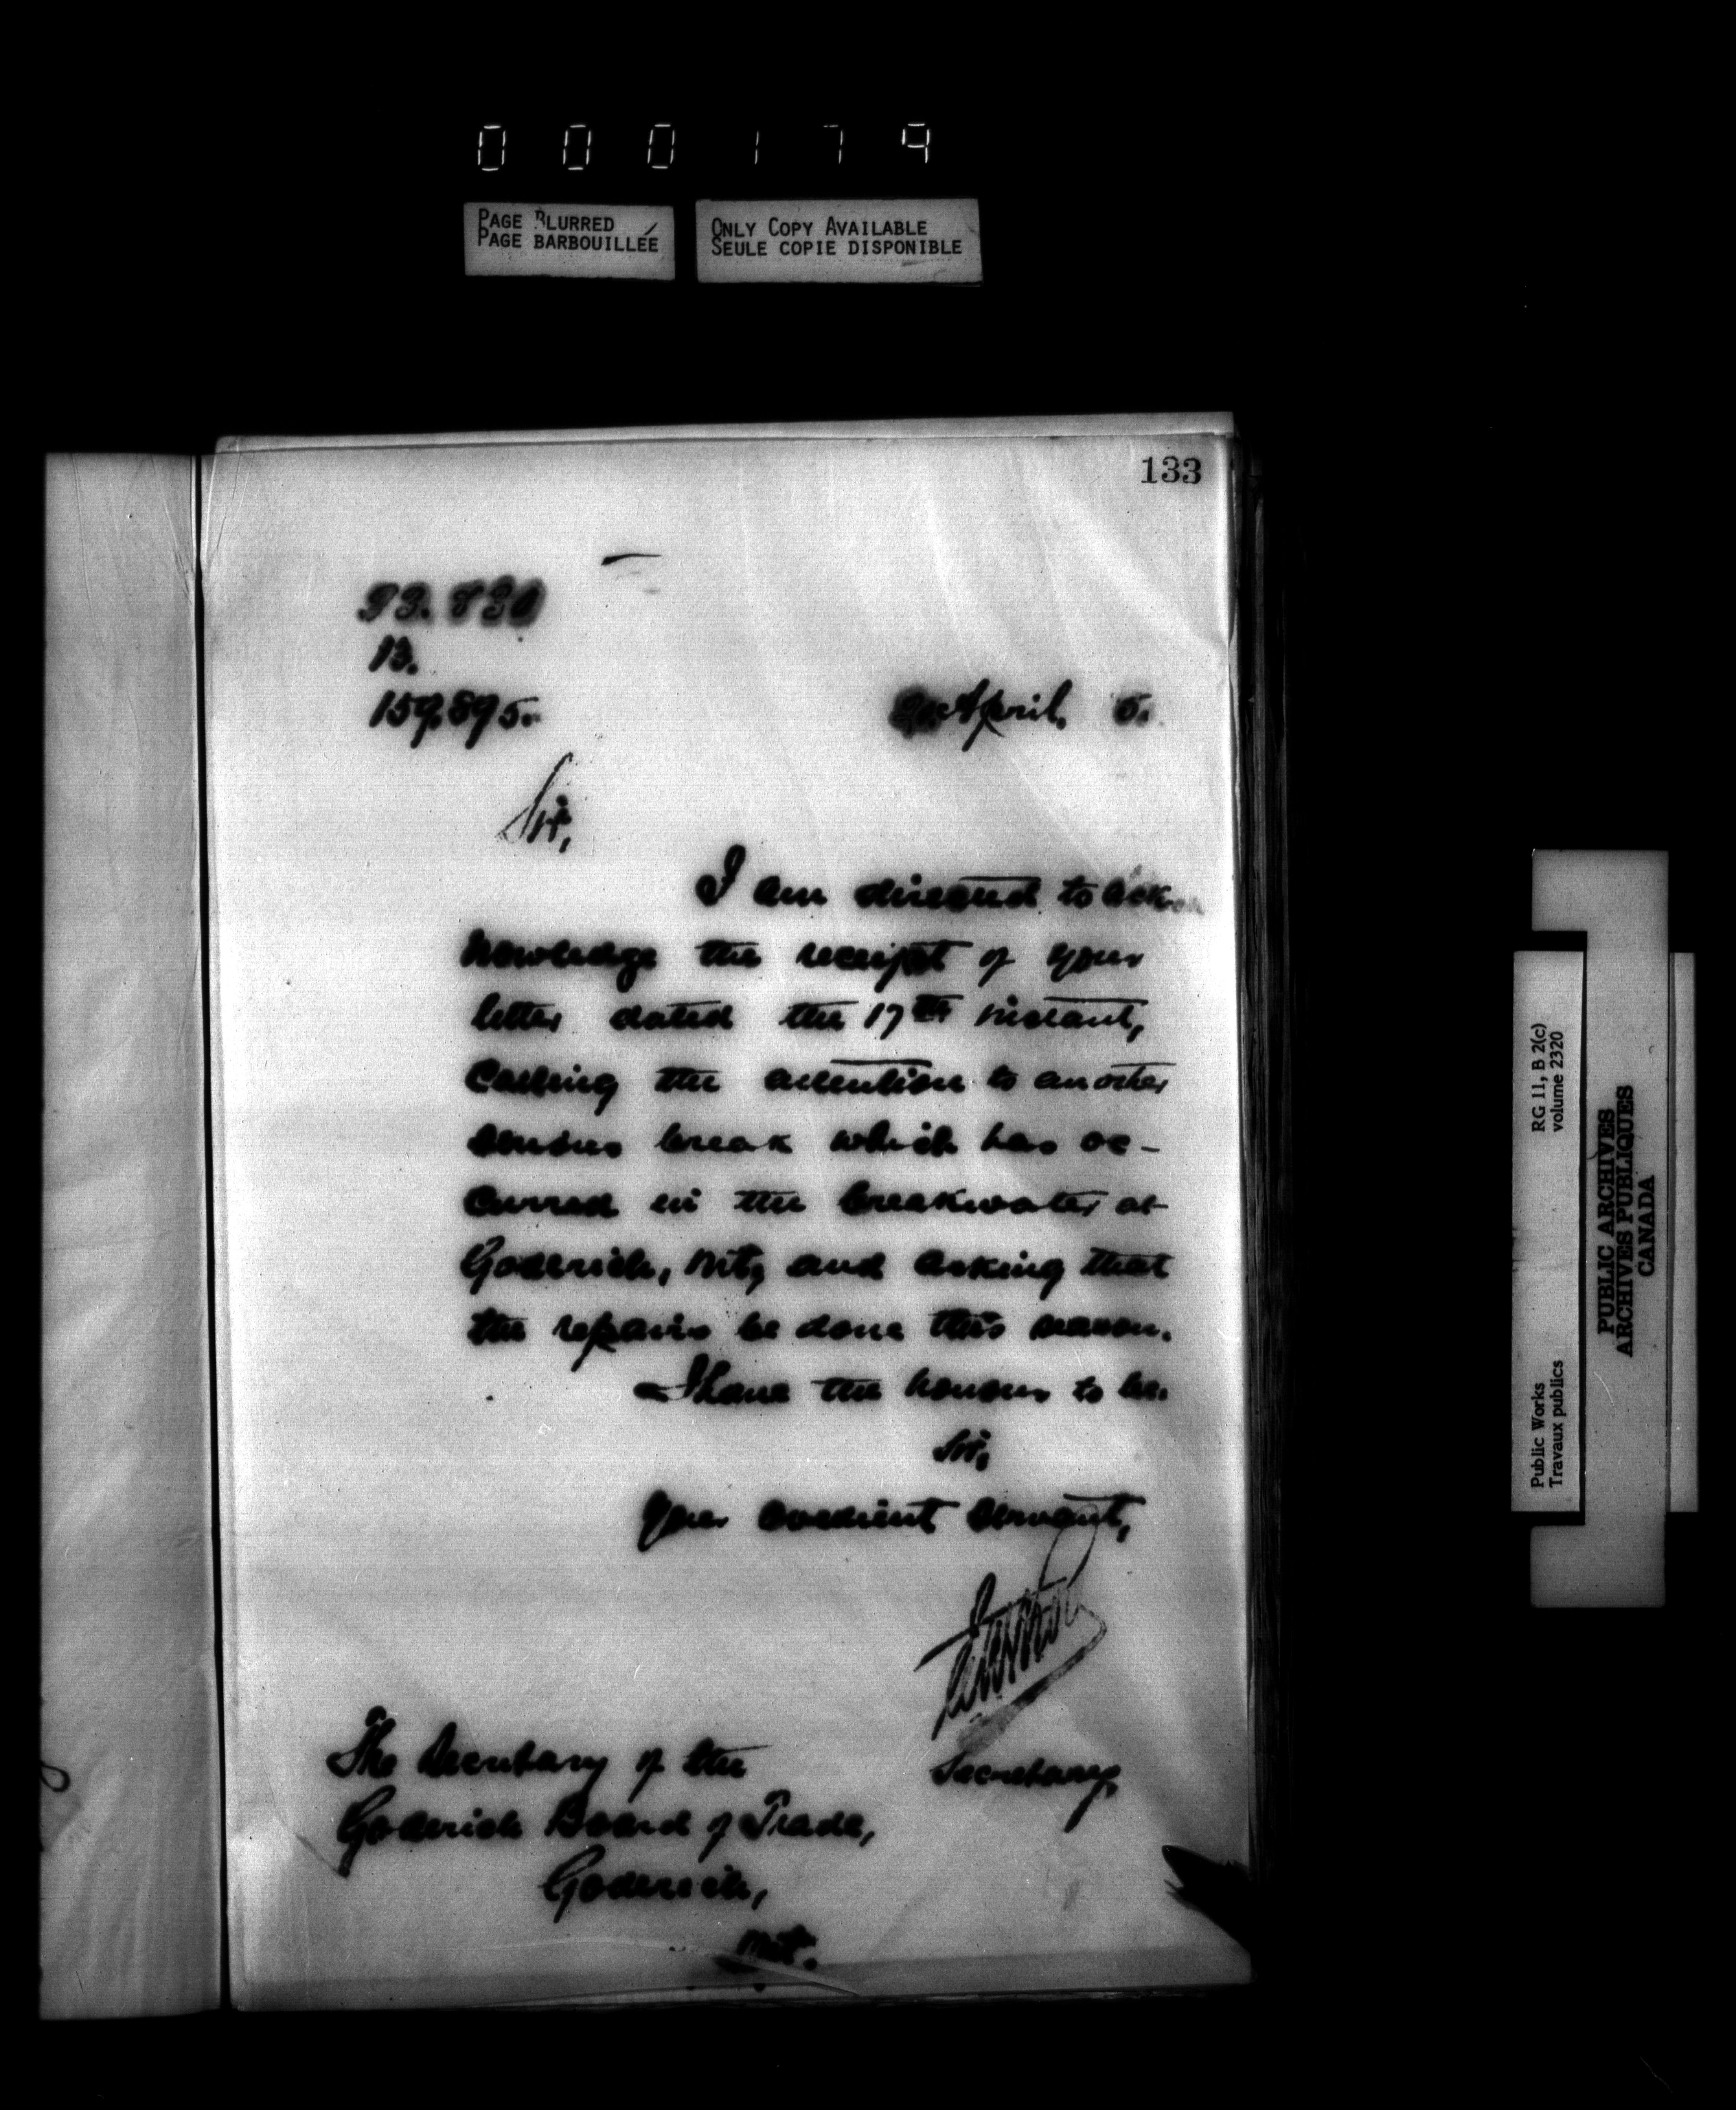 000179
PAGE BLURRED
PAGE BARBOUILLÉE
ONLY COPY AVAILABLE
SEULE COPIE DISPONIBLE
133
13.
159,595.
April, 5.
Sir,
I am directed to ack-
nowledge the receipt of your
letter dated the 17th instant,
calling the attention to another
serious break which has oc-
curred in the breakwater at
Goderich, Ont, and asking that
the repairs be done this season.
I have the honour to be.
Sir,
Your obedient servant,
Secretary.
The Secretary of the
Goderich Board of Trade,
Goderich,
Ont.
RG 11, B 2(c)
volume 2320
Public Works
Travaux publics
PUBLIC ARCHIVES
ARCHIVES PUBLIQUES
CANADA